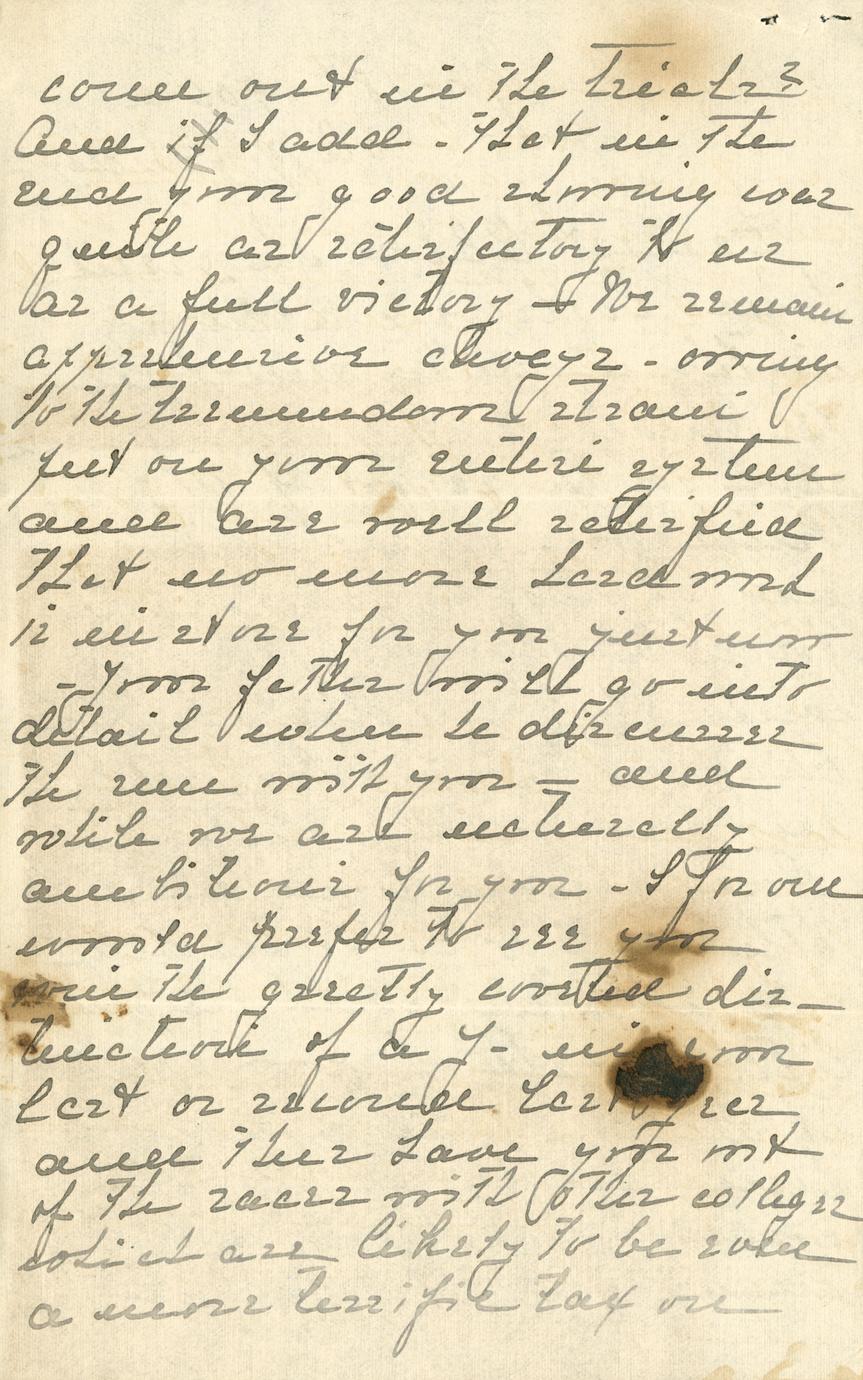 come out in the trials?
And if I add - that in the
end your good showing was
quite as satisfactory to us
as a full victory - We remain
apprehensive always - owing
to the tremendous strain
put on your entire system
and are well satisfied
that no more hard work
is in store for you just now
- Your father will go into
detail when he discusses
the run with you - and
while we are naturally
ambitious for you - I for one
would prefer to see you
win the greatly coveted dis-
tinction of a Y - in your
last or second last year
and then have you out
of the races with other colleges
which are likely to be even
a more terrific tax on